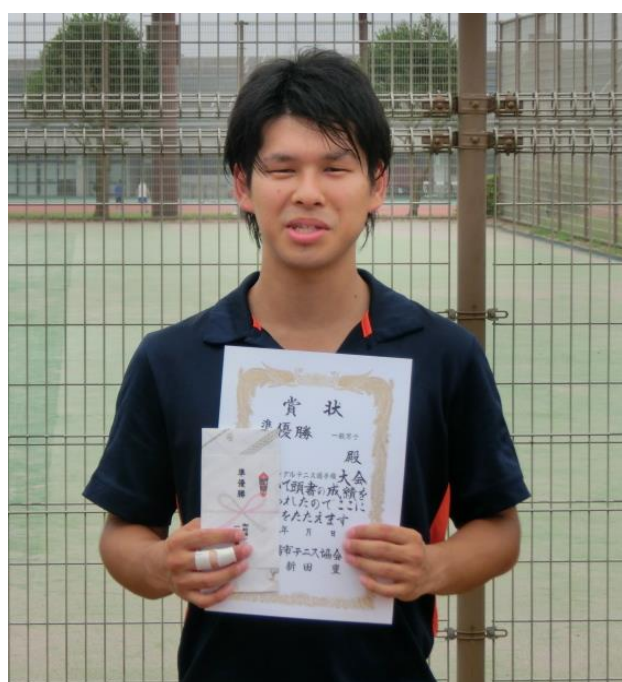 賞状
準優勝 一般男子
殿
シングルテニス選手権大会
て頭書の成績を
ましたのでここに
をたたえます
年 月 日
市テニス協会
新田
準優勝